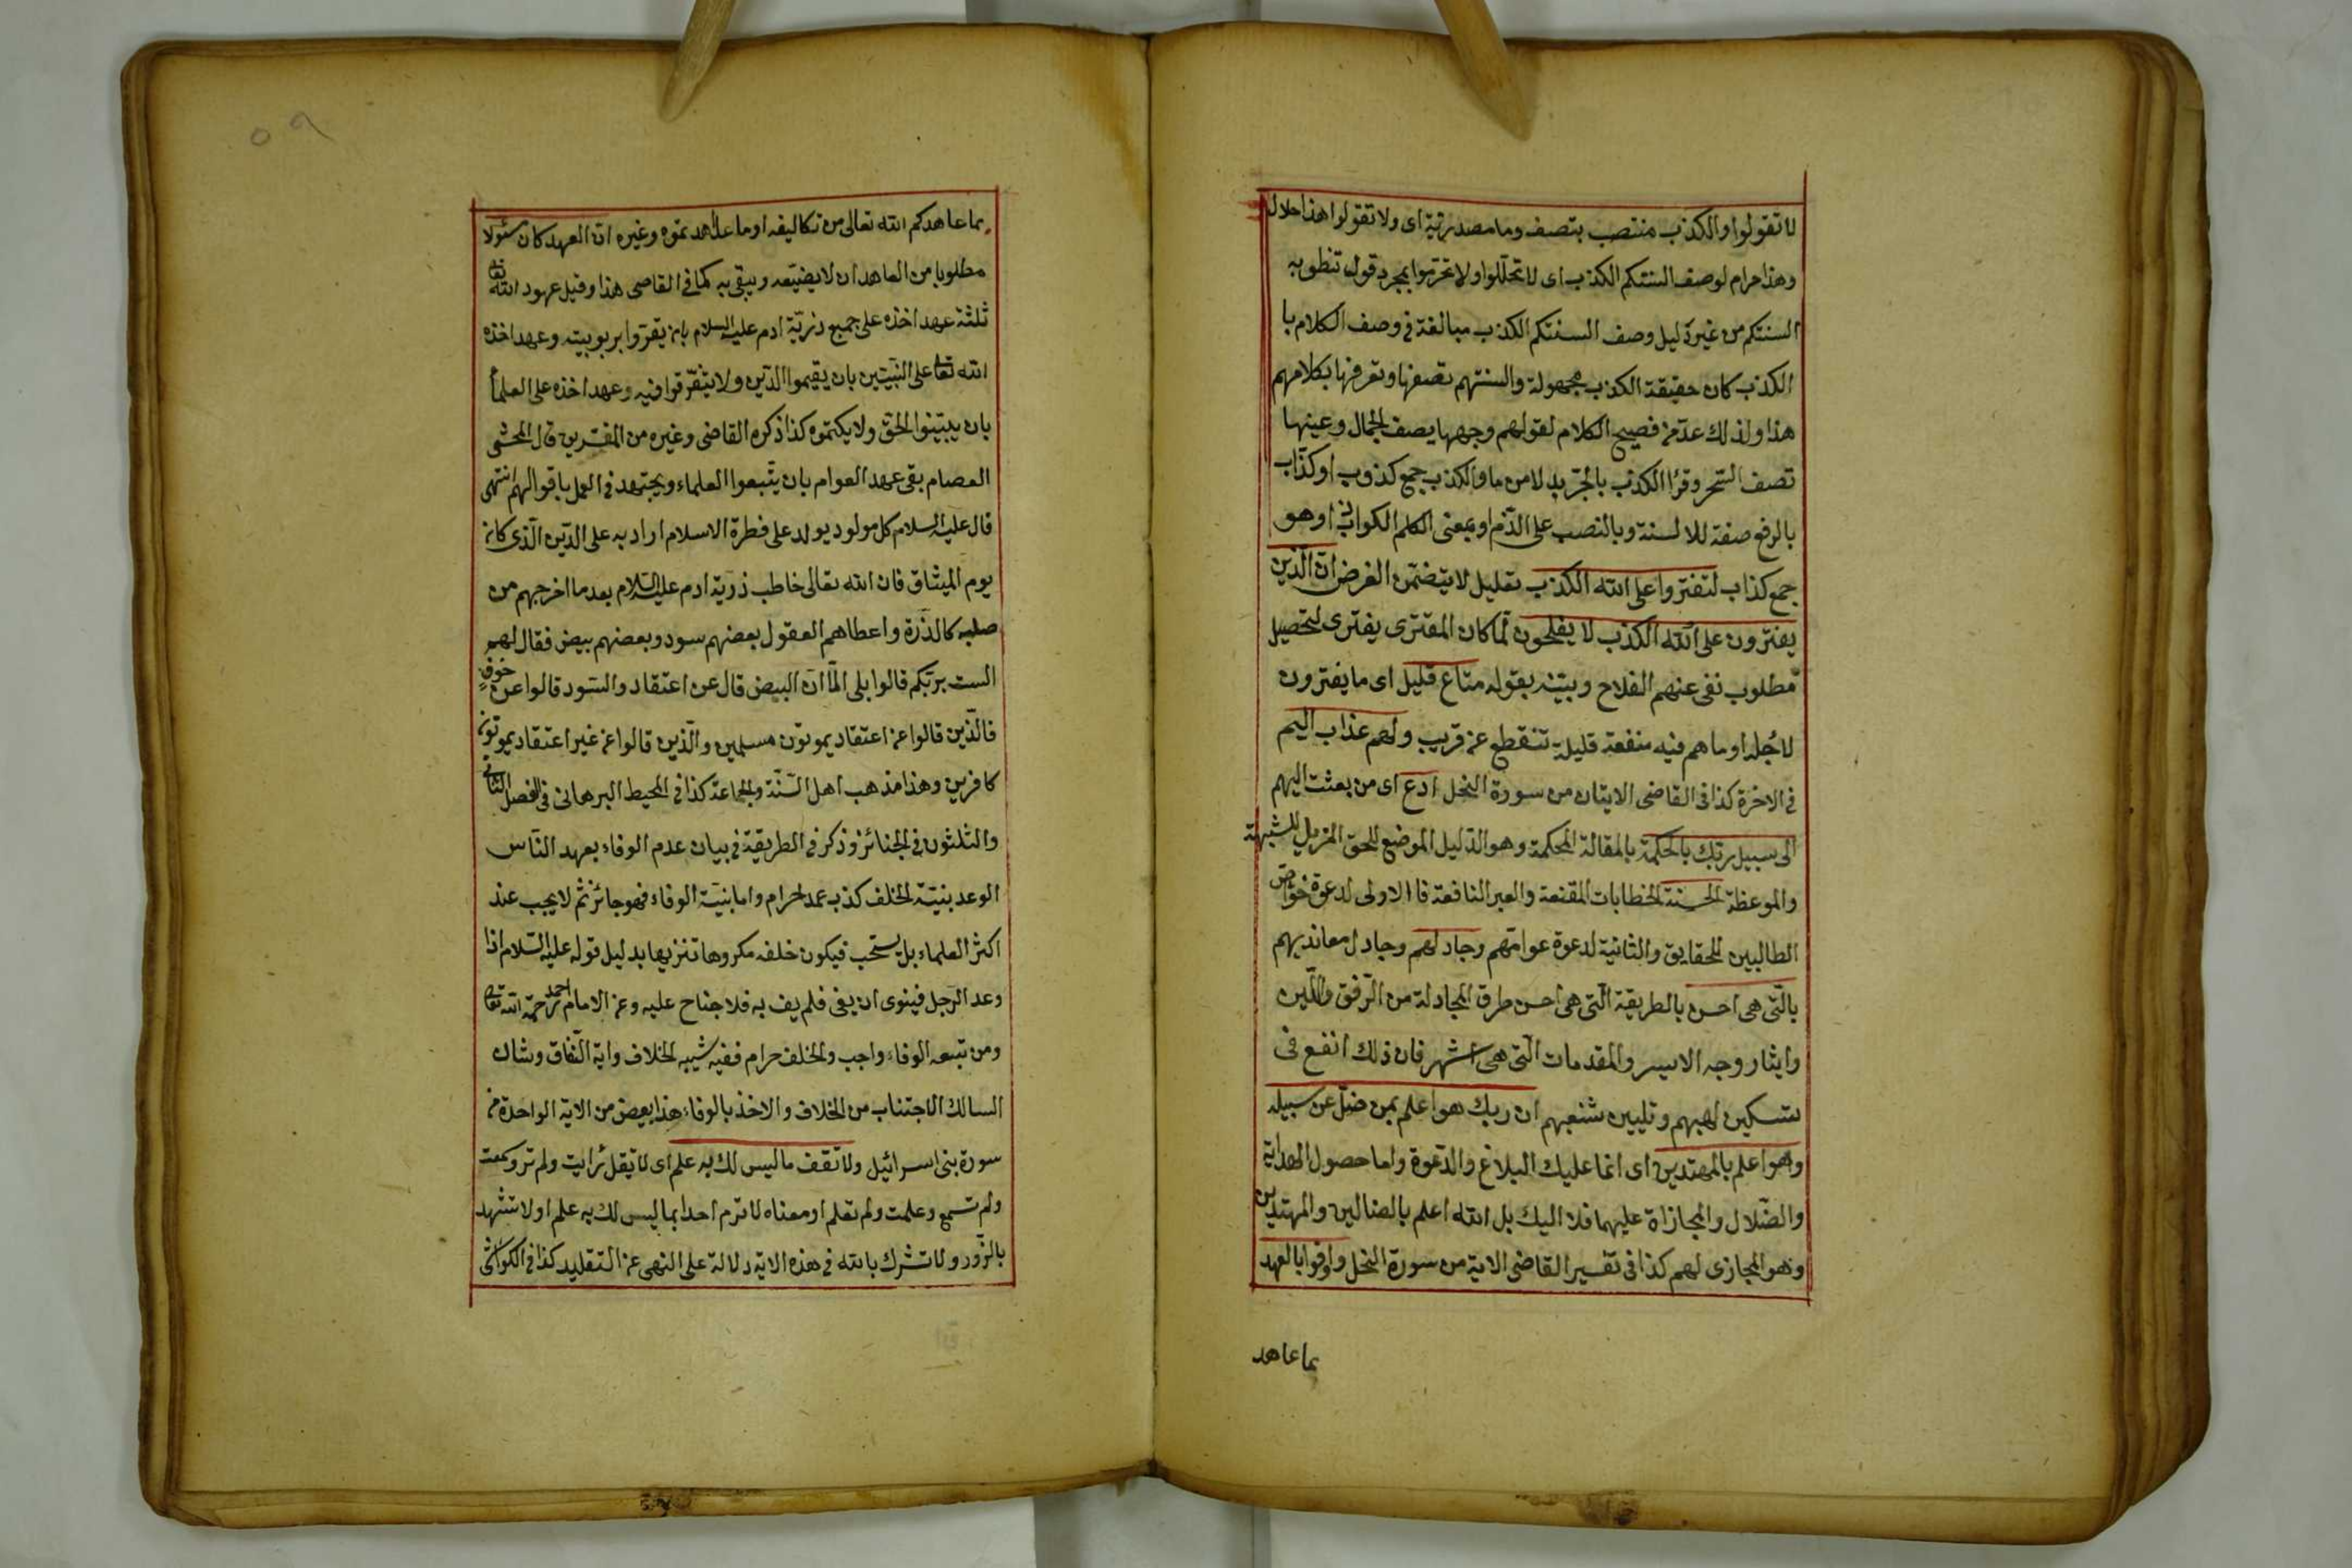 لا تقولوا والكذب منتصب بتصف وما مصدرية اى ولا تقولوا هذا حلال
وهذا حرام لوصف السنتكم الكذب اى لا تحللوا ولا تحرموا بمجرد قول تنطق به
السنتكم من غير دليل وصف السنتكم الكذب مبالغة فى وصف الكلام با
الكذب كان حقيقة الكذب مجهولة والسنتهم تصفها وتعرفها بكلامهم
هذا ولذلك عدّ من فصيح الكلام لقولهم وجهها يصف الجمال وعينها
تصف السّحر وقرئ الكذب بالجرّ بدلا من ما والكذب جمع كذوب او كذّاب
بالرفع صفة للالسنة وبالنصب على الذّم او بمعنى الكلم الكواذب او هو
جمع كذاب لتفتروا على الله الكذب تعليل لا يتضمّن الغرض انّ الّذين
يفترون على الله الكذب لا يفلحون لمّا كان المفترى يفترى لتحصيل
مطلوب نفى عنهم الفلاح وبيّنه بقوله متاع قليل اى ما يفترون
لاجله او ما هم فيه منفعة قليلة تنقطع عن قريب ولهم عذاب اليم
فى الاخرة كذا فى القاضى الايتان من سورة النحل ادع اى من بعثت اليهم
الى سبيل ربّك بالحكمة بالمقالة المحكمة وهو الدّليل الموضع للحق المزيل للشبهة
والموعظة الحسنة الخطابات المقنعة والعبر النافعة فا الاولى لدعوة خواص
الطالبين للحقايق والثانية لدعوة عوامّهم وجادلهم وجادل معانديهم
بالّتى هى احسن بالطريقة الّتى هى احسن طرق المجادلة من الرّفق واللّين
وايثار وجه الايسر والمقدمات الّتى هى اشهر فان ذلك انفع فى
تسكين لهبهم وتليين شغبهم ان ربك هو اعلم بمن ضلّ عن سبيله
وهو اعلم بالمهتدين اى انما عليك البلاغ والدّعوة واما حصول الهداية
والضّلال والمجازاة عليهما فلا اليك بل الله اعلم بالضالين والمهتدين
وهو المجازى لهم كذا فى تفسير القاضى الاية من سورة النحل واوفوا بالعهد
بما عاهد
بما عاهدكم الله تعالى من تكاليفه او ما عاهدتموه وغيره ان العهد كان مسئولا
مطلوبا من العاهد ان لا يضيّعه ويبقى به كما فى القاضى هذا وقيل عهود الله تعا
ثلثة عهد اخذه على جميع ذرّيّة ادم عليه السلام بان يقرّوا بربوبيته وعهد اخذه
الله تعا على النّبيّين بان يقيموا الدّين ولا يتفرّقوا فيه وعهد اخذه على العلما
بان يبيّنوا الحق ولا يكتموه كذا ذكره القاضى وغيره من المفسرين قال المحشى
العصام بقى عهد العوام بان يتّبعوا العلماء ويجتهد فى العمل باقوالهم انتهى
قال عليه السلام كل مولود يولد على فطرة الاسلام اراد به على الدّين الّذى كان
يوم الميثاق فان الله تعالى خاطب ذرية ادم عليه السّلام بعد ما اخرجهم من
صلبه كالذّرة واعطاهم العقول بعضهم سود وبعضهم بيض فقال لهم
الست بربّكم قالوا بلى الّا انّ البيض قال عن اعتقاد والسّود قالوا عن خوف
فالّذين قالوا عن اعتقاد يموتون مسلمين والّذين قالوا عن غير اعتقاد يموتون
كافرين وهذا مذهب اهل السّنّة والجماعة كذا فى المحيط البرهانى فى الفصل الثانى
والثلثون فى الجنائز وذكر فى الطريقة فى بيان عدم الوفاء بعهد النّاس
الوعد بنيّة الخلف كذب عمد حرام واما بنيّة الوفاء فهو جائز ثم لا يجب عند
اكثر العلماء بل يستحب فيكون خلفه مكروها تنزيها بدليل قوله عليه السّلام اذا
وعد الرّجل فينوى ان يفى فلم يف به فلا جناح عليه وعن الامام احمد رحمة الله تعا
ومن تبعه الوفاء واجب والخلف حرام ففيه شبيه الخلاف واية النّفاق وشان
السالك الاجتناب من الخلاف والاخذ بالوفاء هذا بعض من الاية الواحدة من
سورة بنى اسرائيل ولا تقف ما ليس لك به علم اى لا تقل رايت ولم تر وسمعت
ولم تسمع وعلمت ولم تعلم او معناه لا ترم احدا بما ليس لك به علم او لا تشهد
بالزّور ولا تشرك بالله فى هذه الاية دلالة على النهى عن التقليد كذا فى الكواشى